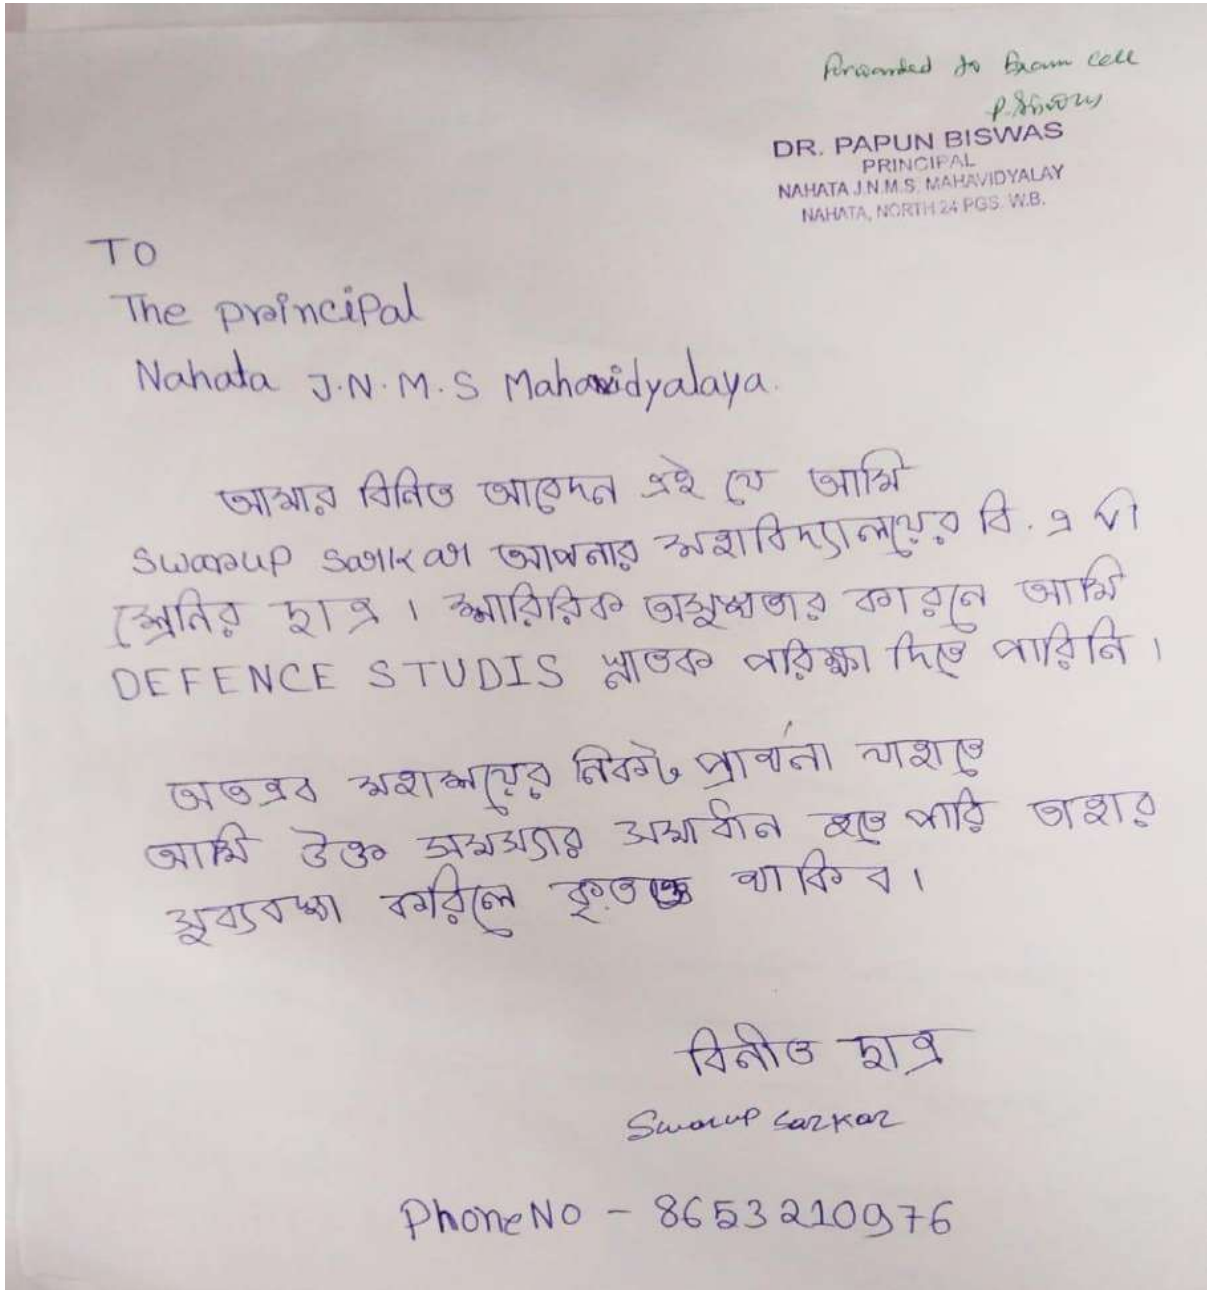 Forwarded to Exam cell
P. Biswas
DR. PAPUN BISWAS
PRINCIPAL
NAHATA J.N.M.S. MAHAVIDYALAY
NAHATA, NORTH 24 PGS. W.B.
TO
The principal
Nahata J.N.M.S Mahavidyalaya.
আমার বিনিত আবেদন এই যে আমি
Swarup Sarkar আপনার মহাবিদ্যালয়ের বি.এ পী
শ্রেনির ছাত্র । শারিরিক অসুস্থতার কারনে আমি
DEFENCE STUDIS স্নাতক পরিক্ষা দিতে পারিনি ।
অতএব মহাশয়ের নিকট প্রার্থনা যাহাতে
আমি উক্ত সমস্যার সমাধান হতে পারি তাহার
সুব্যবস্থা করিলে কৃতজ্ঞ থাকিব ।
বিনীত ছাত্র
Swarup Sarkar
Phone No - 8653210976